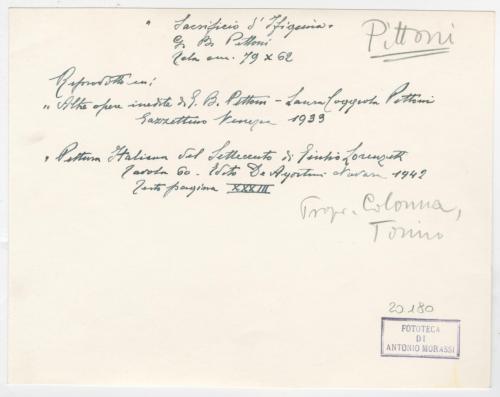 " Sacrificio d'Ifigenia.
G. B. Pittoni
Tela cm. 79 x 62
Pittoni
Reprodotto in:
" Altre opere inedite di G. B. Pittoni - Laura Coggiola Pittoni
Gazzettino Venezia 1933
" Pittura Italiana del Settecento di Giulio Lorenzetti
Tavola 60 - Edito De Agostini Novara 1942
Testo pagina XXXIII
Propr. Colonna,
Torino
20180
FOTOTECA
DI
ANTONIO MORASSI